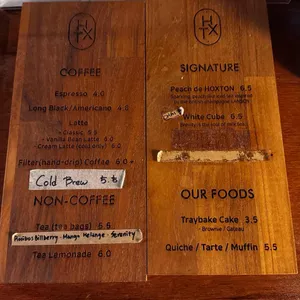 H
TX
COFFEE
Espresso 4.0
Long Black/Americano 4.0
Latte
- Classic 5.5
- Vanilla Bean Latte 6.0
- Cream Latte (iced only) 6.0
Filter(hand-drip) Coffee 6.0+
Cold Brew 5.5
NON-COFFEE
Tea (tea bags) 5.5
Rooibos Billberry · Mango Melange · Serenity
Tea Lemonade 6.0
H
TX
SIGNATURE
Peach de HOXTON 6.5
White Cube 5.5
OUR FOODS
Traybake Cake 3.5
- Brownie / Gateau
Quiche / Tarte / Muffin 5.5